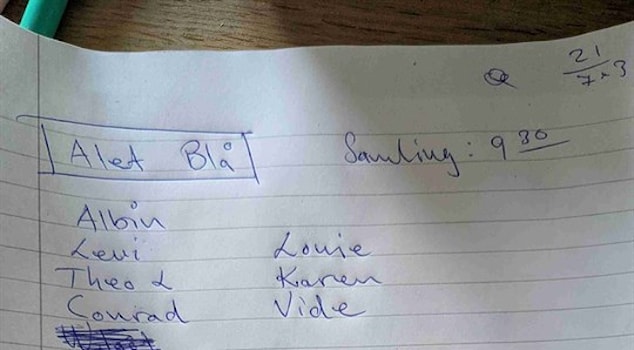 21
7 × 3
Alet Blå
Samling: 9 30
Albin
Levi
Theo L
Conrad
Louie
Karen
Vide